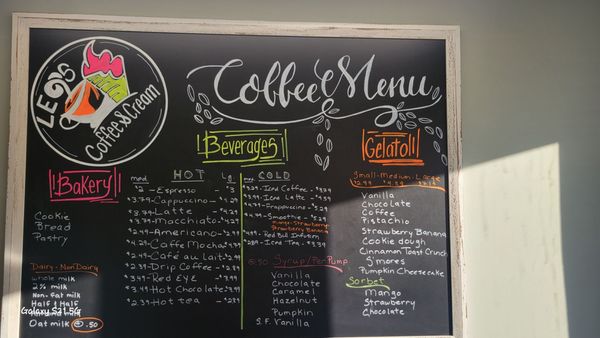 LEO'S
Coffee & Cream
Coffee Menu
Bakery
Cookie
Bread
Pastry
Dairy - Non Dairy
whole milk
2% milk
Non-fat milk
Half & Half
Almond milk
Oat milk .50
Beverages
HOT
med Lg
$2 - Espresso - $3
$3.79 - Cappuccino - $4.29
$3.79 - Latte - $4.29
$3.79 - Macchiato - $4.29
$2.49 - Americano - $2.99
$4.29 - Caffe Mocha - $4.79
$2.49 - Café au Lait - $2.99
$2.39 - Drip Coffee - $2.89
$3.49 - Red Eye - $3.99
$3.49 - Hot Chocolate - $3.99
$2.39 - Hot tea - $2.89
COLD
med Lg
Iced Coffee
Iced Latte
$4.79 - Frappuccino - $5.29
$4.79 - Smoothie - $5.29
Mango - Strawberry
Strawberry Banana
Red Bull Infusion
Iced Tea
.50 Syrup/Per Pump
Vanilla
Chocolate
Caramel
Hazelnut
Pumpkin
S.F. Vanilla
Gelato
Small - Medium - Large
Vanilla
Chocolate
Coffee
Pistachio
Strawberry Banana
Cookie dough
Cinnamon Toast Crunch
S'mores
Pumpkin Cheesecake
Sorbet
Mango
Strawberry
Chocolate
Galaxy S21 5G